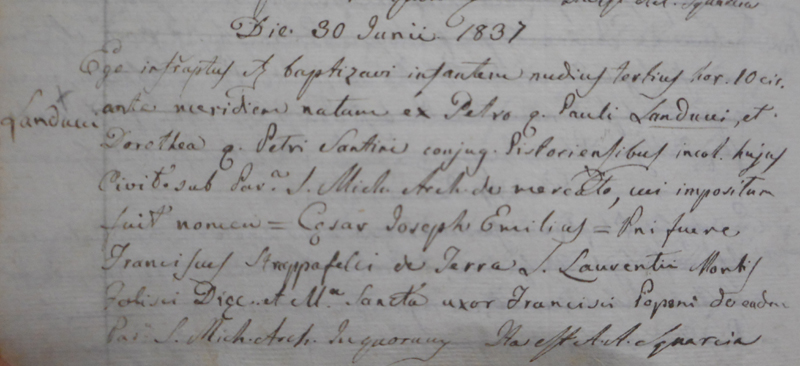 Die 30 Junii 1837
Ego infraptus etc baptizavi infantem nudius tertius hor. 10 cir.
Landucci
ante meridiem natum ex Petro q. Pauli Landucci, et
Dorothea q. Petri Santini conjug. Pistoriensibus incol. hujus
Civit.e sub Par.a S. Mich. Arch. de mercato, cui impositum
fuit nomen = Cesar Joseph Emilius = Pni fuere
Franciscus Strappafelci de Terra S. Laurentii Montis
Dioec. et M.a Sancta uxor Francisci Peponi de eadm
Par. S. Mich. Arch. In quorum Ita est A. A. Squarcia